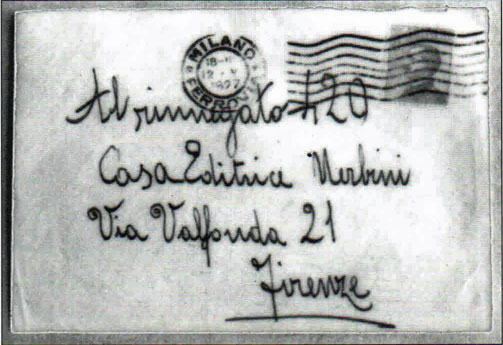 MILANO
FERROVIA
Al rinnegato 420
Casa Editrice Nerbini
Via Valfonda 21
Firenze